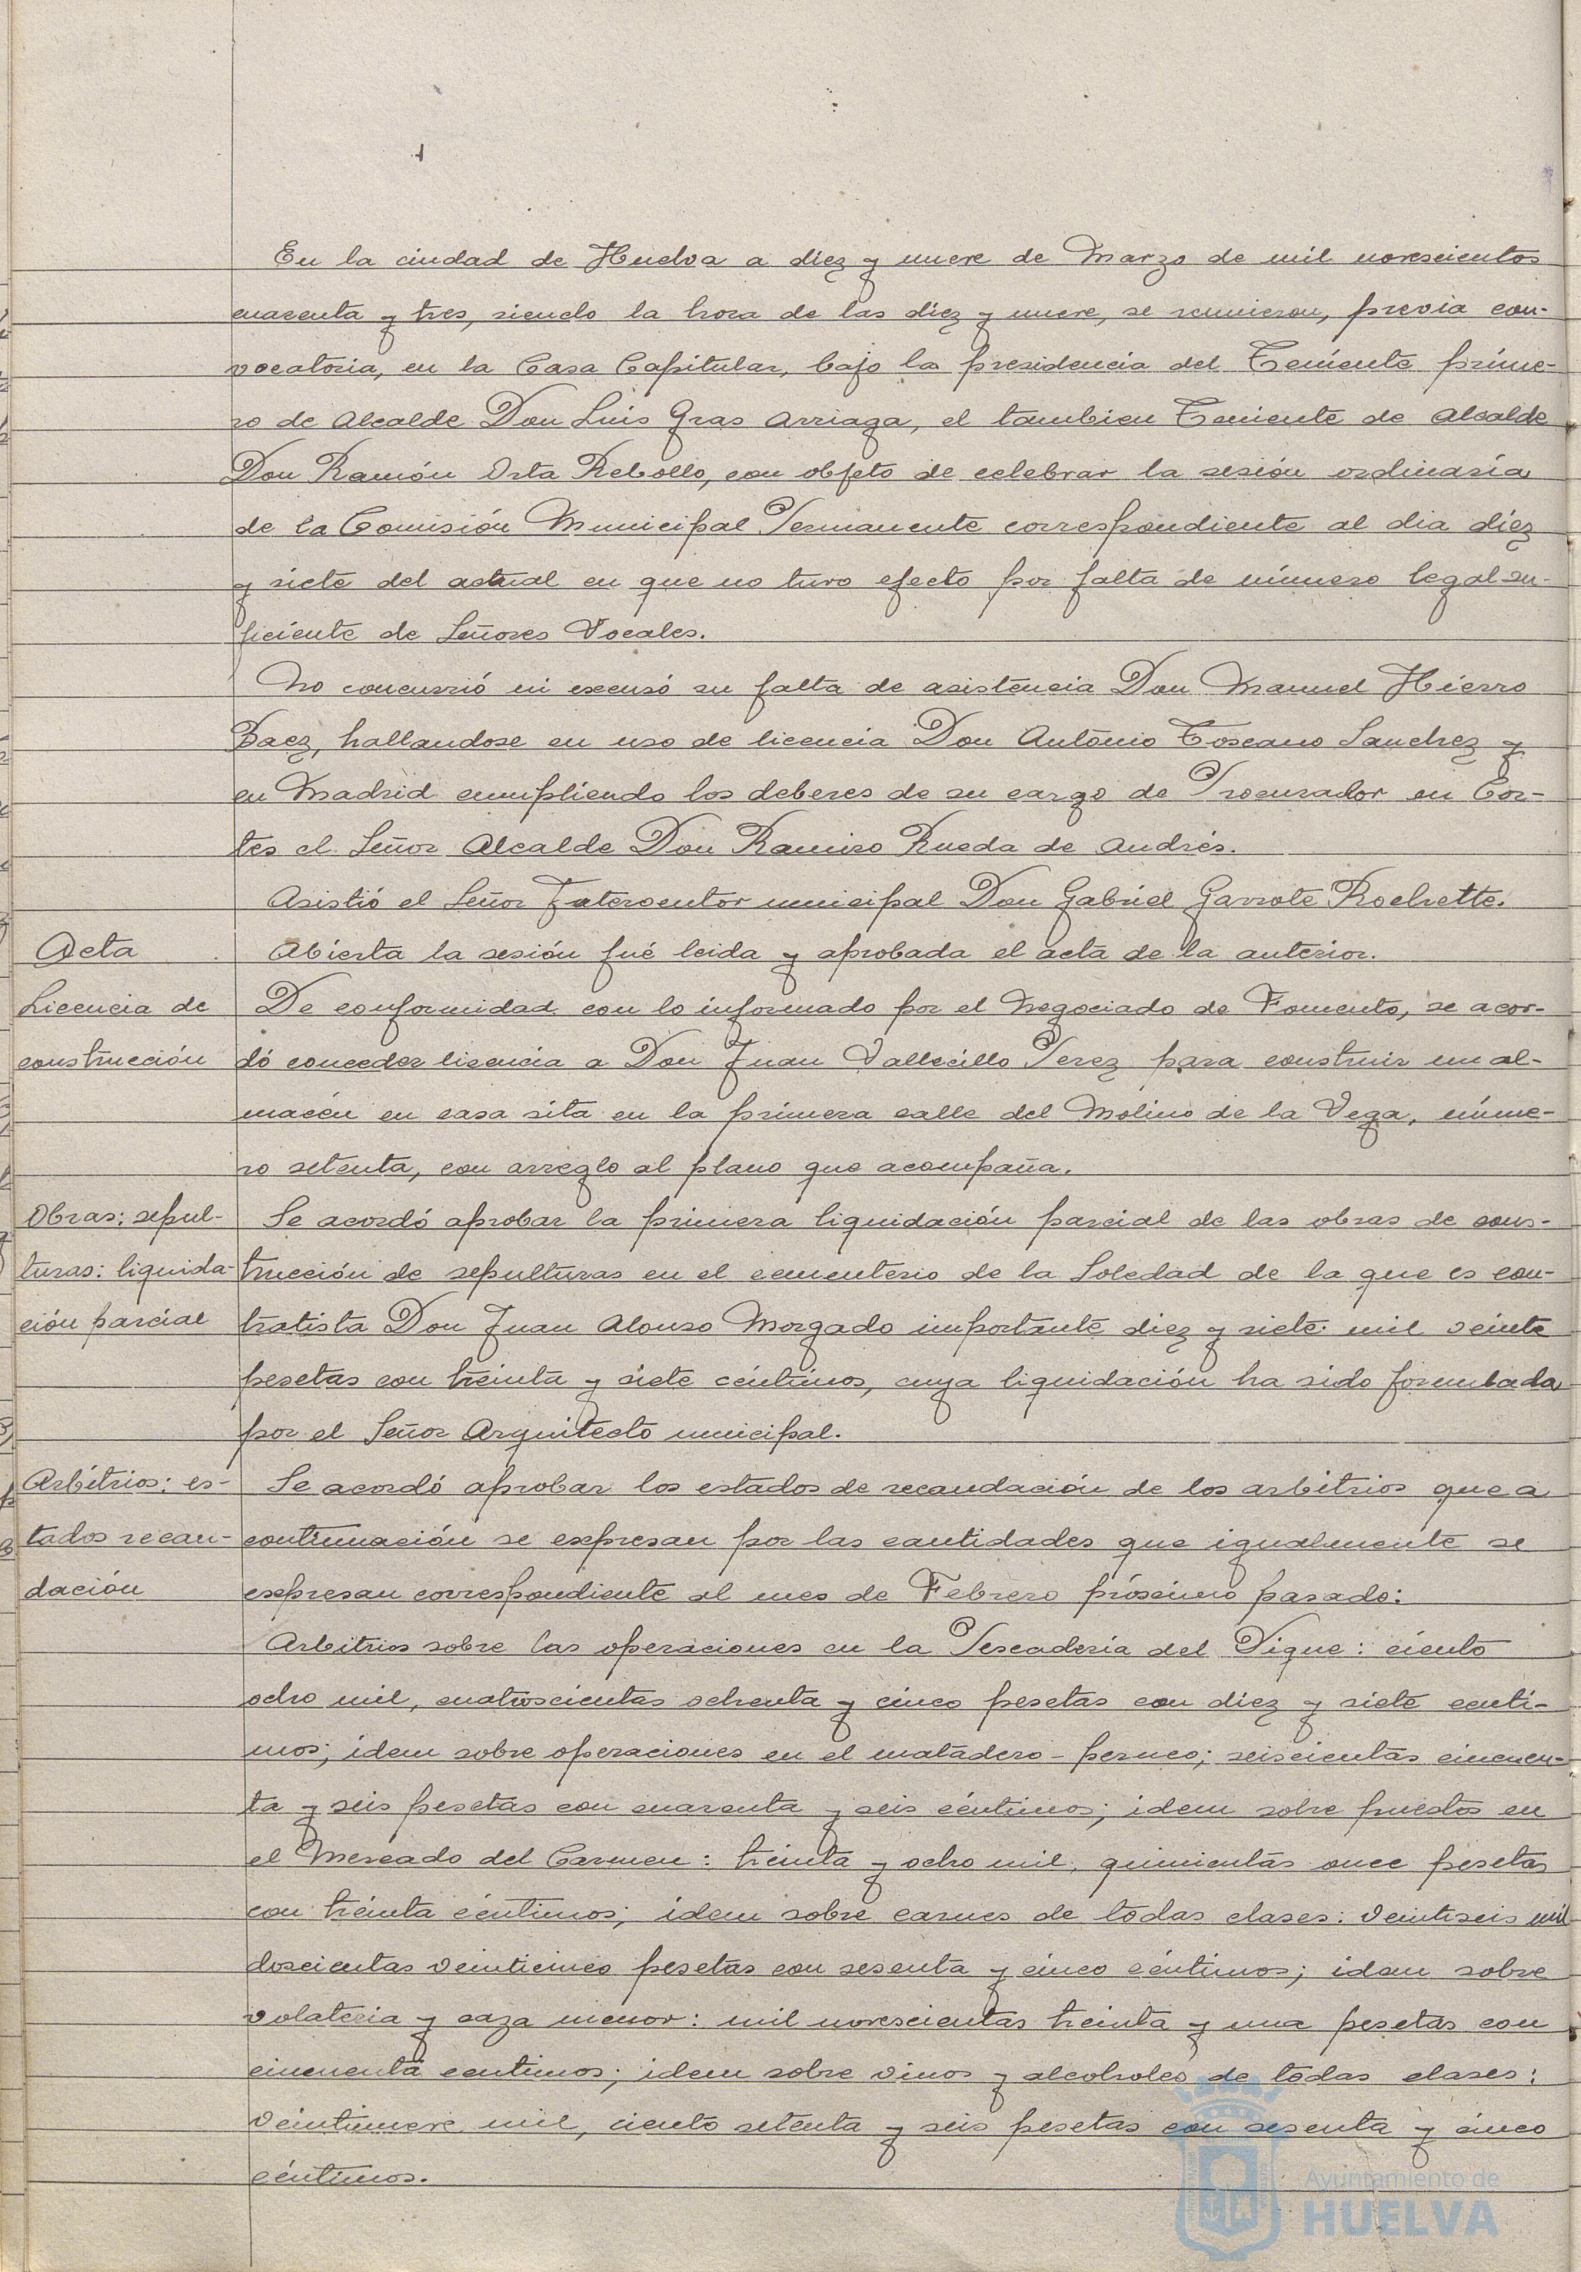 En la ciudad de Huelva a diez y nueve de Marzo de mil novescientos
cuarenta y tres, siendo la hora de las diez y nueve, se reunieron, previa con-
vocatoria, en la Casa Capitular, bajo la presidencia del Teniente prime-
ro de Alcalde Don Luis Gras Arriaga, el tambien Teniente de Alcalde
Don Ramón Orta Rebollo, con objeto de celebrar la sesión ordinaria
de la Comisión Municipal Permanente correspondiente al dia diez
y siete del actual en que no tuvo efecto por falta de número legal su-
ficiente de Señores Vocales.
No concurrió ni excusó su falta de asistencia Don Manuel Hierro
Baez, hallandose en uso de licencia Don Antonio Toscano Sanchez y
en Madrid cumpliendo los deberes de su cargo de Procurador en Cor-
tes el Señor Alcalde Don Ramiro Rueda de Andrés.
Asistió el Señor Interventor municipal Don Gabriel Garrote Rochette.
Acta
Abierta la sesión fué leida y aprobada el acta de la anterior.
Licencia de
construcción
De conformidad con lo informado por el Negociado de Fomento, se acor-
dó conceder licencia a Don Juan Vallecillo Perez para construir un al-
macén en casa sita en la primera calle del Molino de la Vega, núme-
ro setenta, con arreglo al plano que acompaña.
Obras: sepul-
turas: liquida-
ción parcial
Se acordó aprobar la primera liquidación parcial de las obras de cons-
trucción de sepulturas en el cementerio de la Soledad de la que es con-
tratista Don Juan Alonso Morgado importante diez y siete mil veinte
pesetas con treinta y siete céntimos, cuya liquidación ha sido formulada
por el Señor Arquitecto municipal.
Arbitrios: es-
tados recau-
dación
Se acordó aprobar los estados de recaudación de los arbitrios que a
continuación se expresan por las cantidades que igualmente se
expresan correspondiente al mes de Febrero próximo pasado:
Arbitrios sobre las operaciones en la Pescaderia del Dique: ciento
ocho mil, cuatroscientas ochenta y cinco pesetas con diez y siete centi-
mos; idem sobre operaciones en el matadero-perneo; seiscientas cincuen-
ta y seis pesetas con cuarenta y seis céntimos; idem sobre puestos en
el Mercado del Carmen: treinta y ocho mil, quinientas once pesetas
con treinta céntimos; idem sobre carnes de todas clases: veintiseis mil
doscientas veinticinco pesetas con sesenta y cinco céntimos; idem sobre
volateria y caza menor: mil novescientas treinta y una pesetas con
cincuenta centimos; idem sobre vinos y alcoholes de todas clases:
veintinueve mil, ciento setenta y seis pesetas con sesenta y cinco
céntimos.
Ayuntamiento de
HUELVA